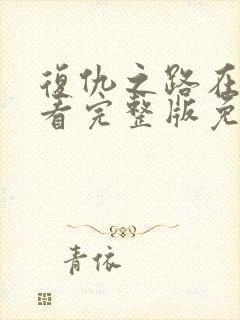 復仇之路在
看完整版免
青依